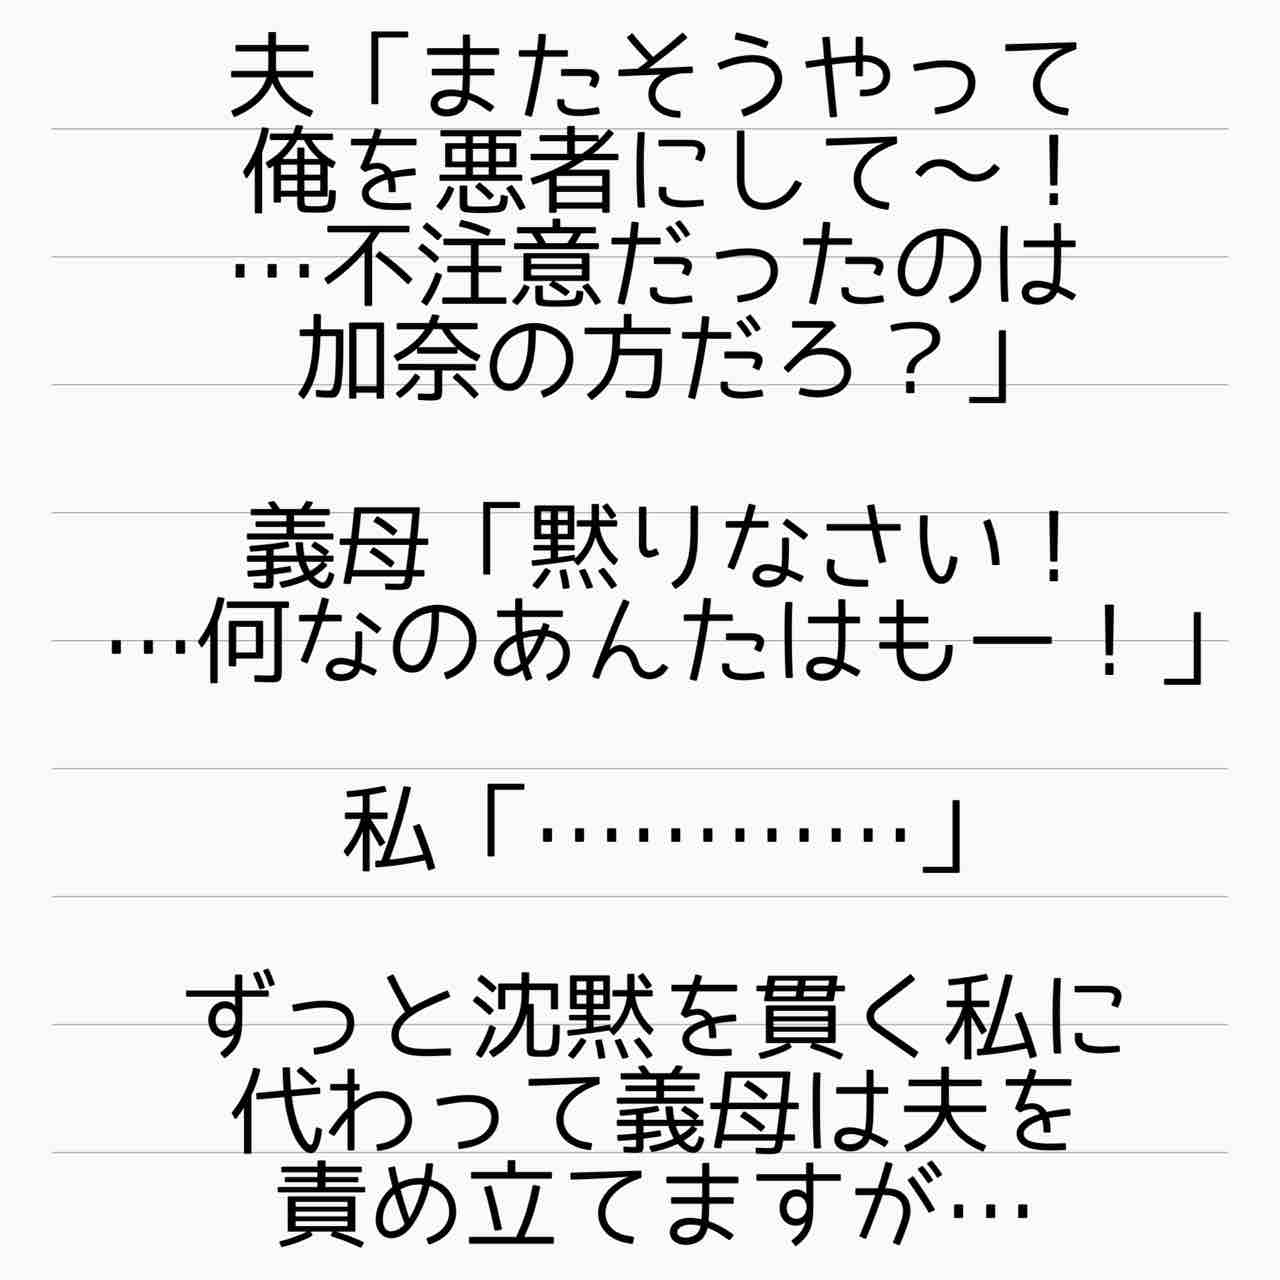 夫「またそうやって
俺を悪者にして〜！
…不注意だったのは
加奈の方だろ？」
義母「黙りなさい！
…何なのあんたはもー！」
私「…………」
ずっと沈黙を貫く私に
代わって義母は夫を
責め立てますが…